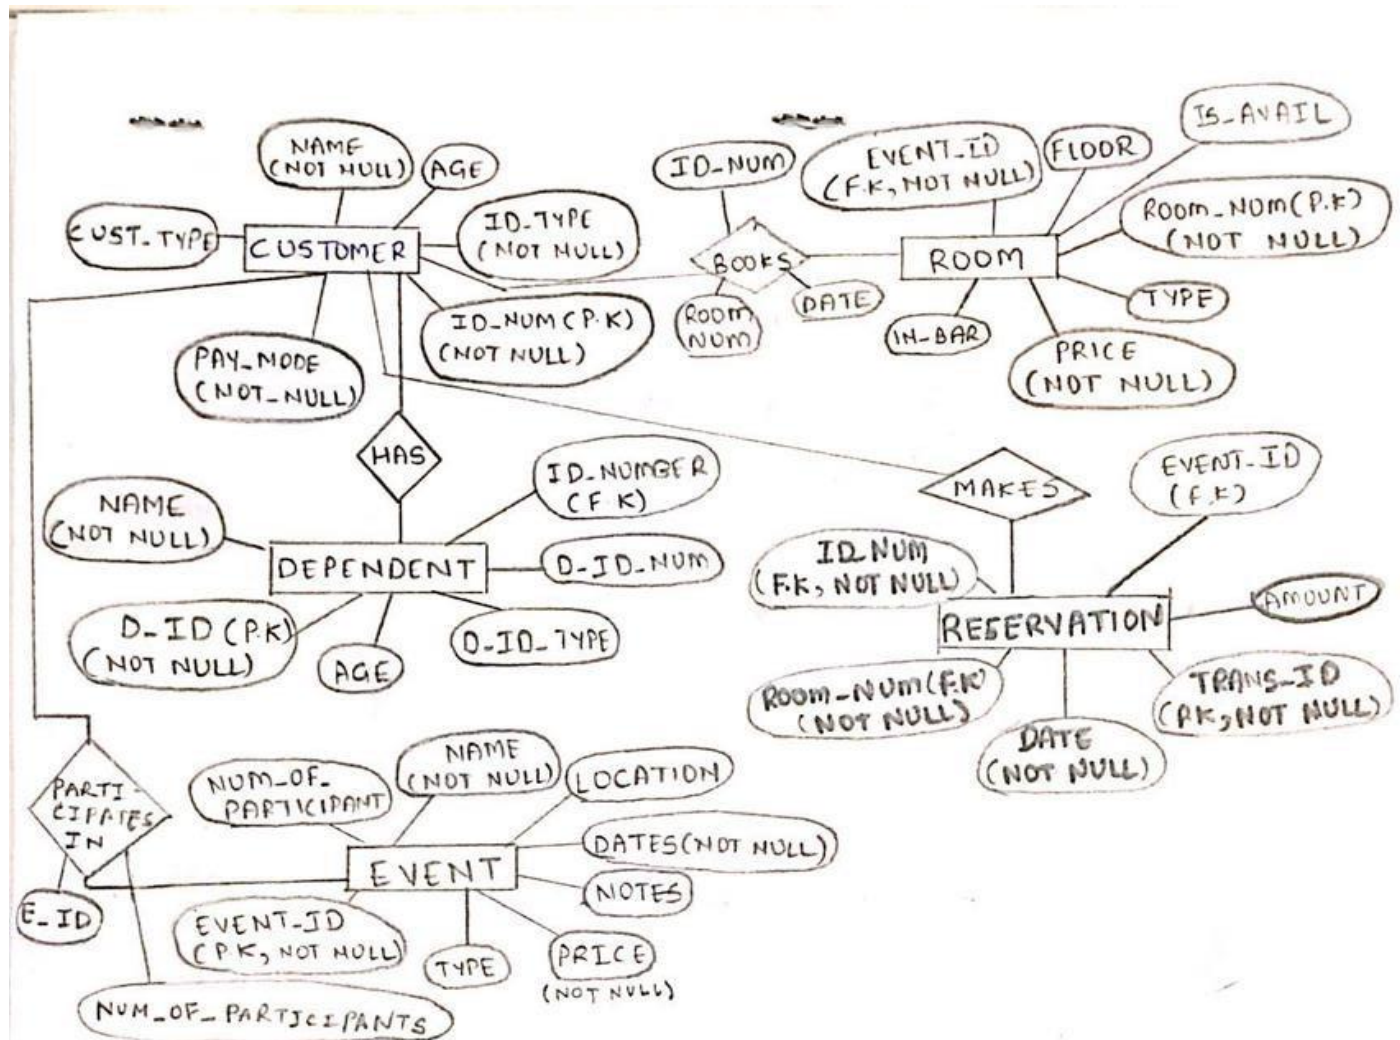 NAME
(NOT NULL)
AGE
CUST_TYPE
CUSTOMER
ID_TYPE
(NOT NULL)
ID_NUM (P.K)
(NOT NULL)
PAY_MODE
(NOT_NULL)
ID_NUM
BOOKS
ROOM
NUM
DATE
EVENT_ID
(F.K, NOT NULL)
FLOOR
IS_AVAIL
ROOM_NUM (P.K)
(NOT NULL)
ROOM
TYPE
IN-BAR
PRICE
(NOT NULL)
HAS
NAME
(NOT NULL)
ID_NUMBER
(F.K)
DEPENDENT
D_ID_NUM
D_ID (P.K)
(NOT NULL)
AGE
D_ID_TYPE
MAKES
EVENT_ID
(F.K)
ID_NUM
(F.K, NOT NULL)
RESERVATION
AMOUNT
ROOM_NUM (F.K)
(NOT NULL)
DATE
(NOT NULL)
TRANS_ID
(P.K, NOT NULL)
PARTI-
CIPATES
IN
E_ID
NUM_OF_PARTICIPANTS
NUM_OF_
PARTICIPANT
NAME
(NOT NULL)
LOCATION
EVENT
DATES (NOT NULL)
NOTES
EVENT_ID
(P.K, NOT NULL)
TYPE
PRICE
(NOT NULL)